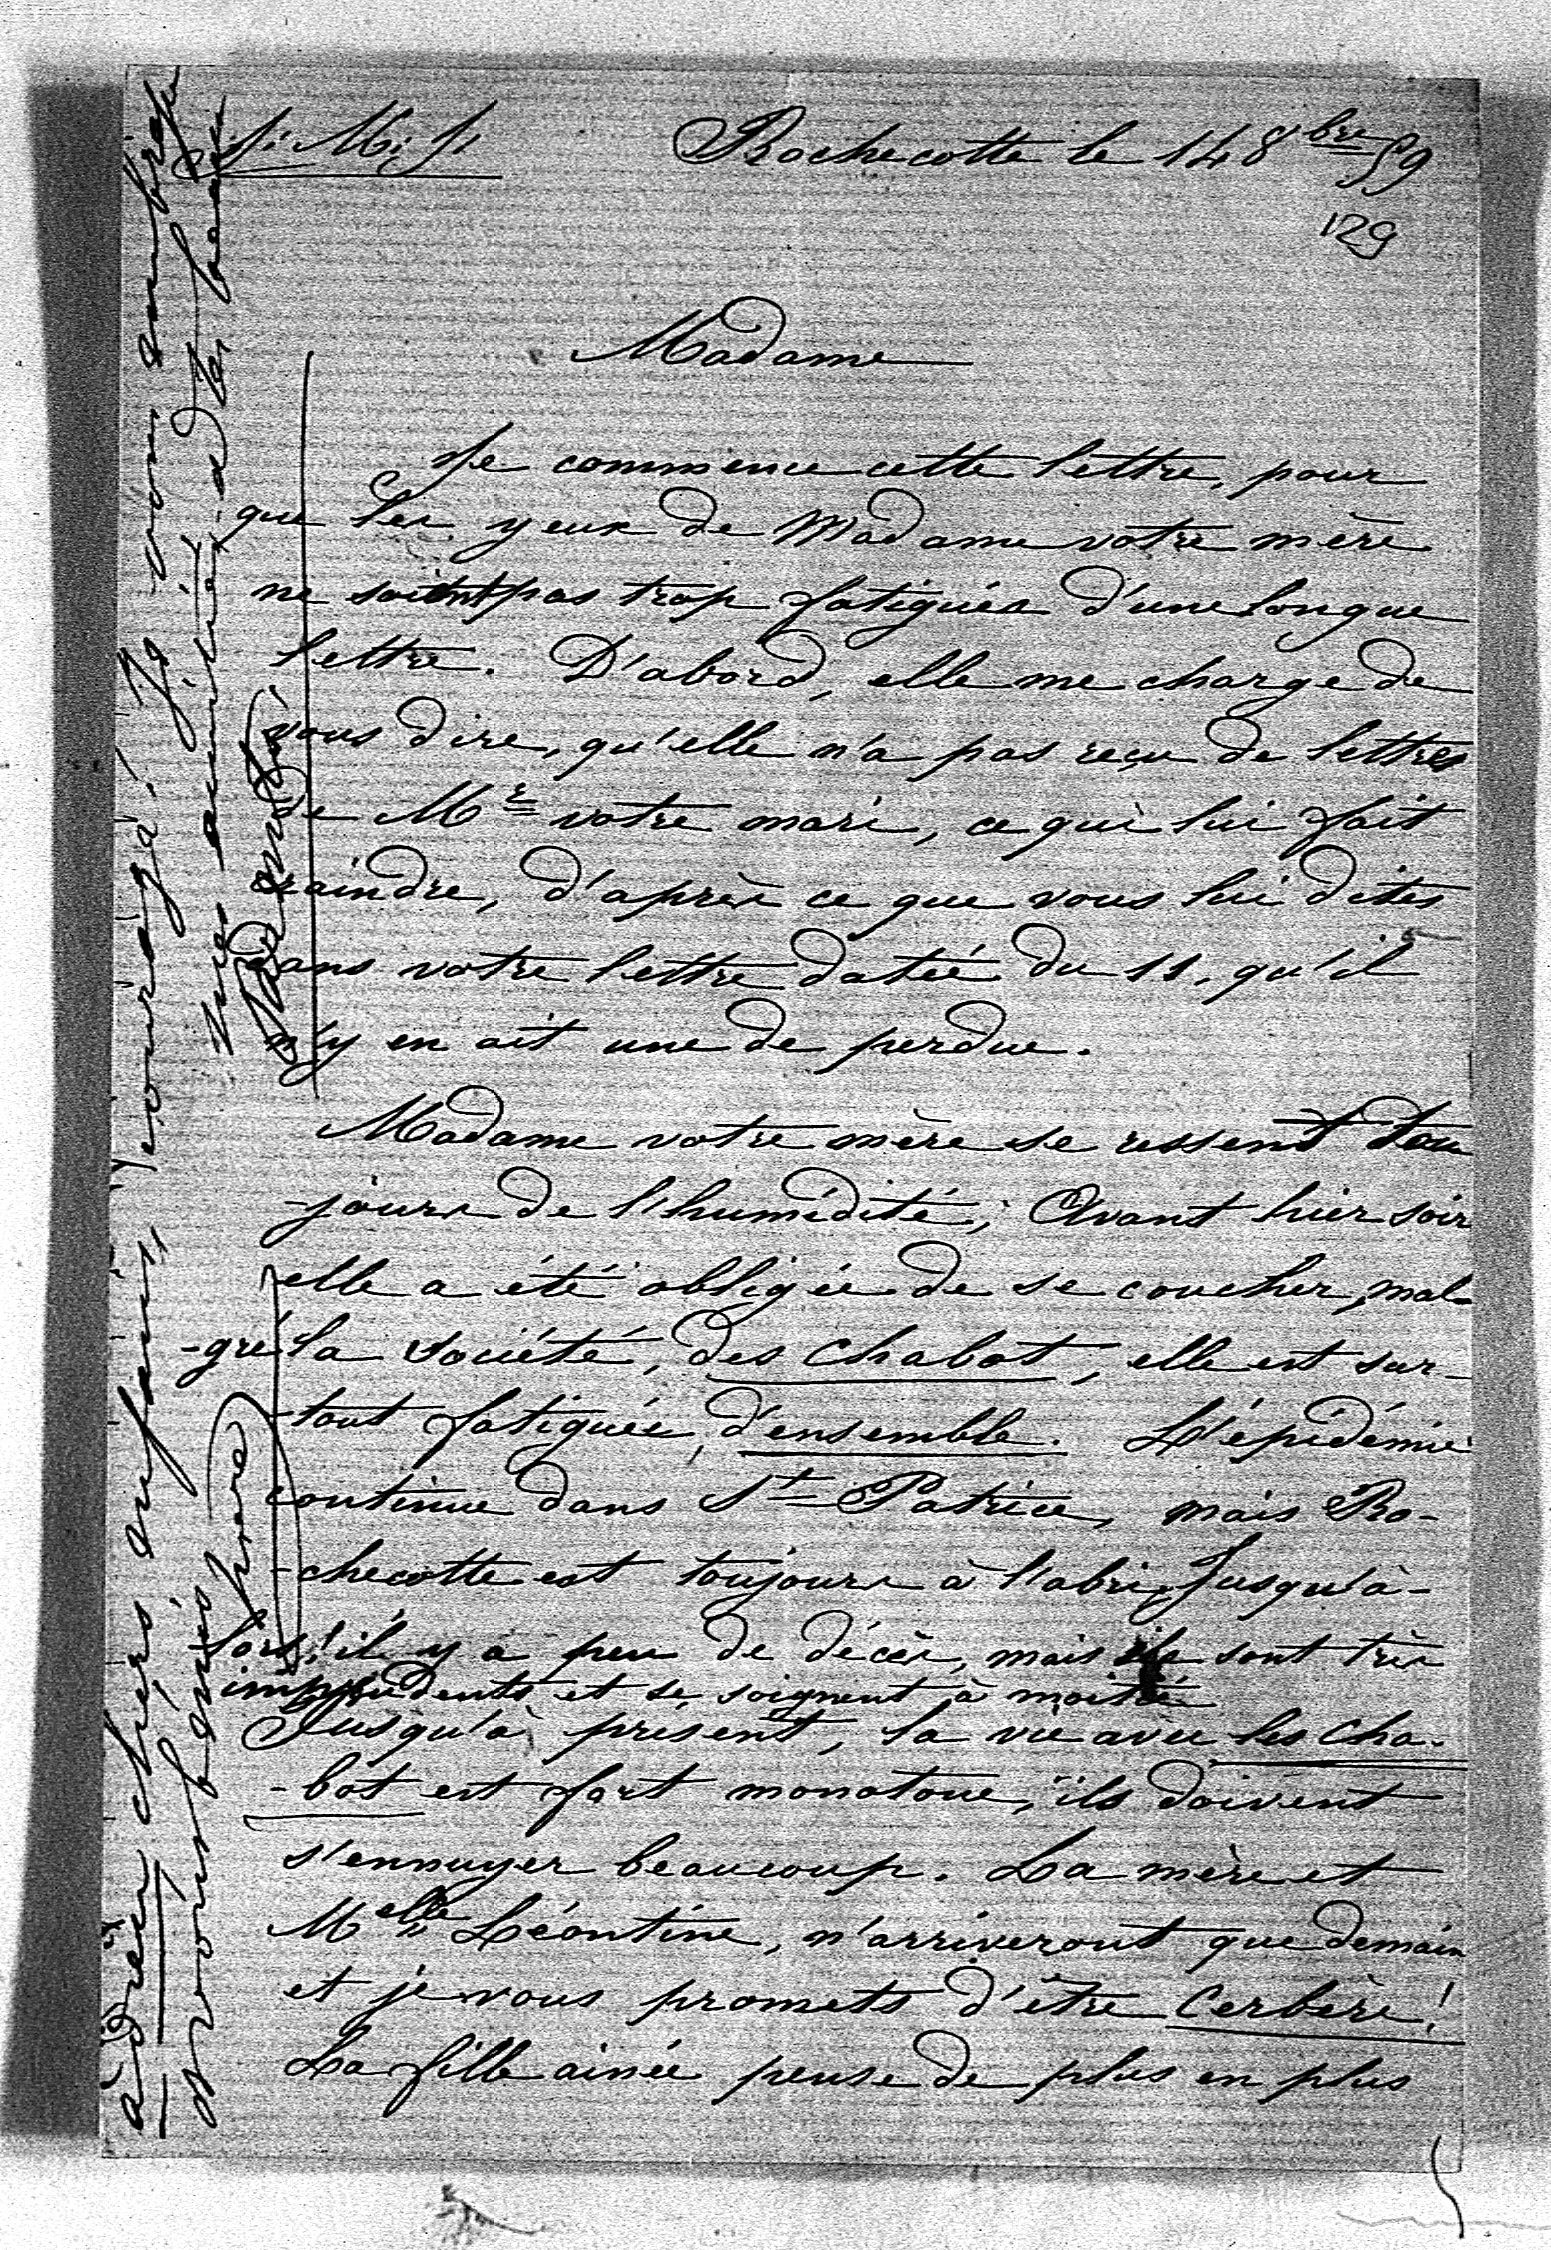 J. M. J. Rochecotte le 14 8bre 59
129
Madame
Je commence cette lettre, pour
que les yeux de Madame votre mère
ne soient pas trop fatigués d'une longue
lettre. D'abord, elle me charge de
vous dire, qu'elle n'a pas reçu de lettres
de Mr votre mari, ce qui lui fait
craindre, d'après ce que vous lui dites
dans votre lettre datée du 11, qu'il
n'y en ait une de perdue.
Madame votre mère se ressent tou
jours de l'humidité; Avant hier soir
elle a été obligée de se coucher, mal-
-gré la société, des Chabot, elle est sur-
-tout fatiguée, d'ensemble. L'épidémie
continue dans St Patrice, mais Ro-
-checotte est toujours à l'abri. Jusqu'à-
lors! il y a peu de décès, mais ils sont très
imprudents et se soignent à moitié
Jusqu'à présent, la vie avec les Cha-
-bot est fort monotone, ils doivent
s'ennuyer beaucoup. La mère et
Melle Léontine, n'arriveront que demain
et je vous promets d'être Cerbère!
La fille ainée pense de plus en plus
à Dieu chers enfans, courage! Je vous embrasse
et vous bénis